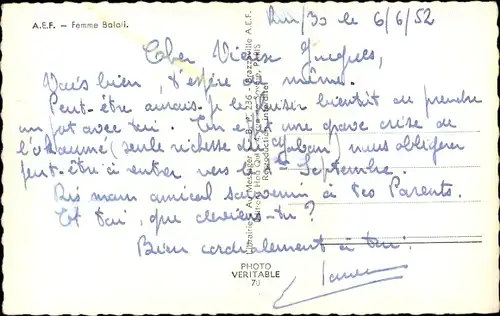 A.E.F. — Femme Balali.
6/6/52
Cher Vieux Jacques,
Vais bien, t'espère de même.
Peut-être aurais-je le plaisir bientôt de prendre
un pot avec toi. Un effet une grave crise de
l'okoumé (seule richesse du Gabon) nous obligera
peut-être à rentrer vers le 1er Septembre.
Mon amical souvenir à tes Parents.
Et toi, que deviens-tu ?
Bien cordialement à toi.
Librairie Au Messager B. P. 236 - Brazzaville A.E.F.
Editions Hoa Qui PARIS
Reproduction interdite
PHOTO
VERITABLE
70